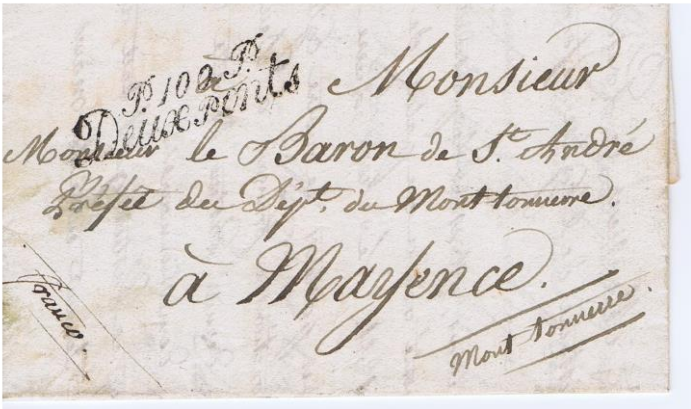 P. 102 P.
Deux Ponts
à Monsieur
Monsieur le Baron de St. André
Préfet du Dépt. du Mont tonnerre.
à Mayence.
franco.
Mont tonnerre.